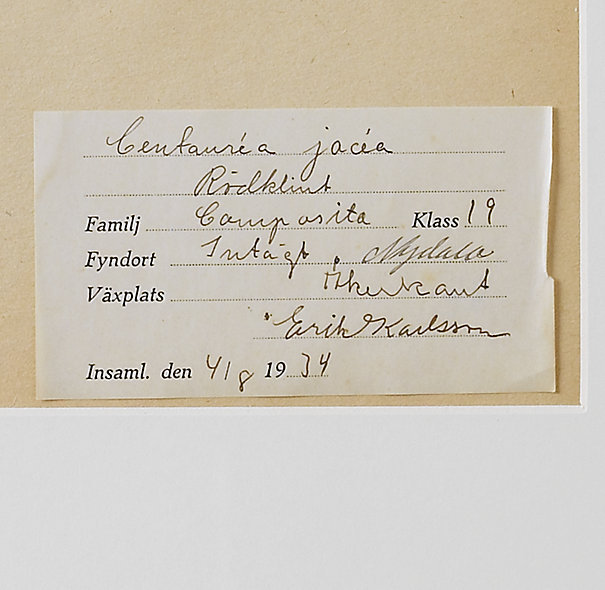 Centauréa jacéa
Rödklint
Familj Composita Klass 19
Fyndort Intágt, Nydala
Växplats Åkerkant
Erik Karlsson
Insaml. den 4/8 1934